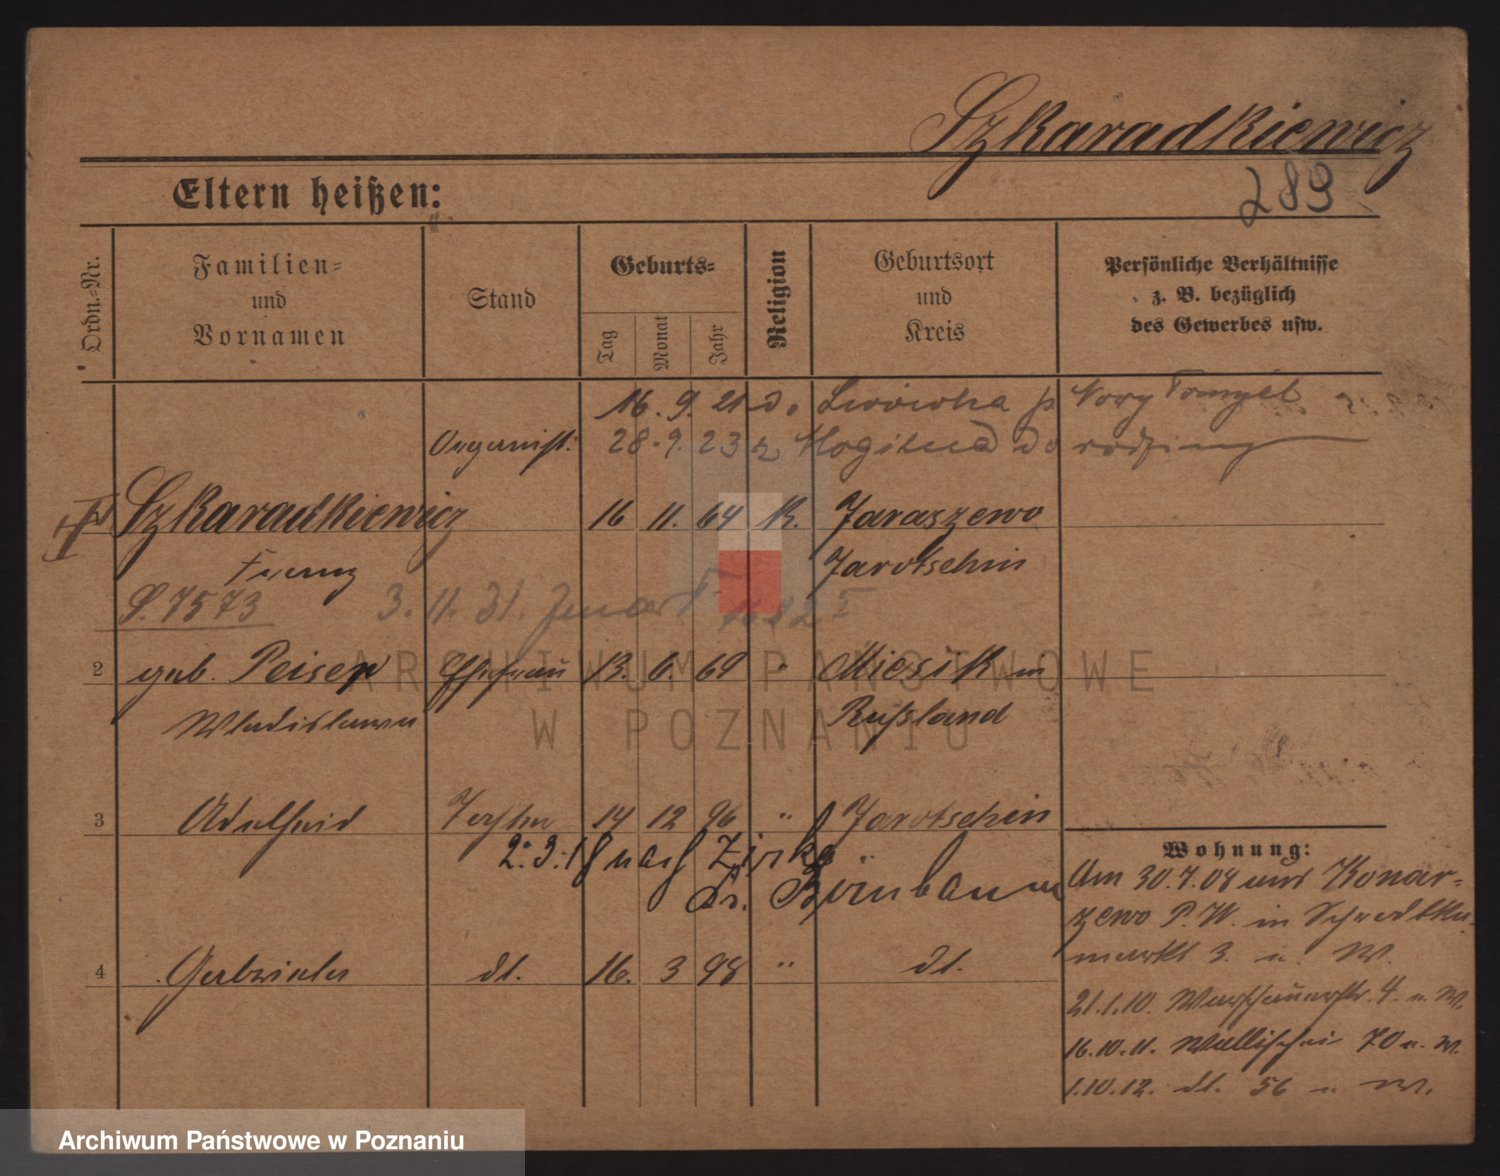 Szkaradkiewicz
Eltern heißen:
289
Ordn.-Nr.
Familien-
und
Vornamen
Stand
Geburts-
Tag
Monat
Jahr
Religion
Geburtsort
und
Kreis
Persönliche Verhältnisse
z. B. bezüglich
des Gewerbes usw.
16. 9. 21 do Lwówka p Nowy Tomyśl
Organist. 28. 9. 23 z Mogilna do rodziny
Szkaradkiewicz 16 11. 64 K. Jaraszewo
Franz Jarotschin
S. 7573 3. 11. 31.
2 geb. Peiser Ehefrau 13. 6. 69 " Miesik in
Wladislawa Russland
3 Adelheid Tochter 14 12 96 " Jarotschin
2. 3. 18 nach Zirke
Kr. Birnbaum
4 Gabriele dt. 16. 3 98 " dt.
Wohnung:
Am 30.7.08 aus Konar-
zewo P. W. in
markt 3. u. W.
21.1.10. Warschauerstr. 4. u. W.
16.10.11. Wallischei 70 u. W.
1.10.12. dt. 56 u W.
ARCHIWUM PAŃSTWOWE
W POZNANIU
Archiwum Państwowe w Poznaniu